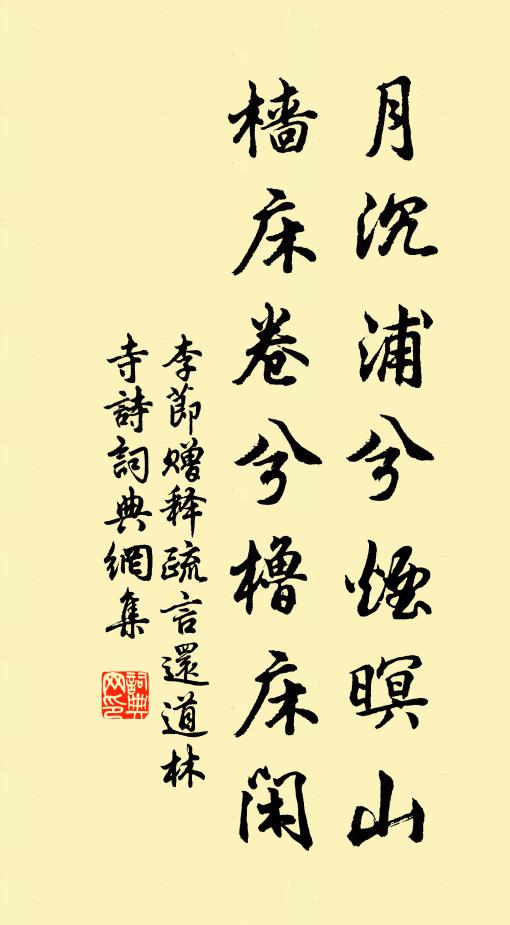 月沉浦兮煙暝山
檣床卷兮櫓床閑
李節贈释疏言還道林
寺詩詞典網集
詞典
网印